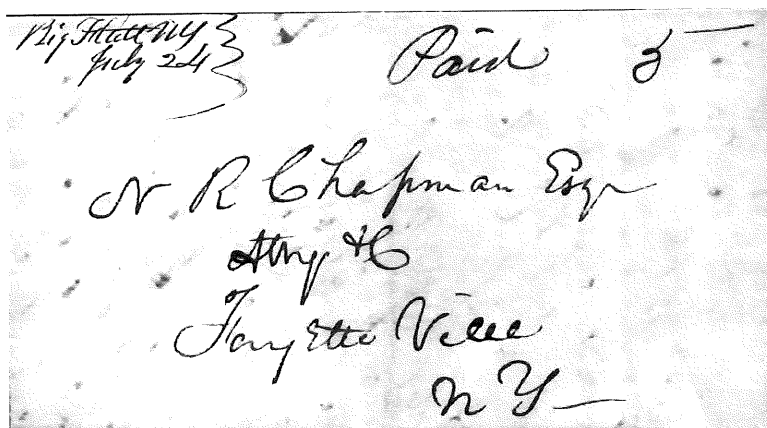 Big Flatt NY
July 24
Paid 5
N R Chapman Esqr
Atty &C
Fayette Ville
NY